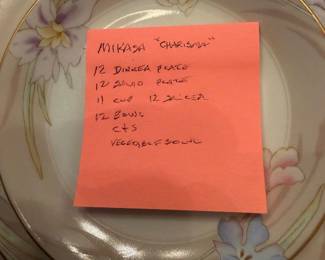 MIKASA "CHARISMA"
12 DINNER PLATE
12 SALAD PLATE
11 CUP 12 SAUCER
12 BOWL
C+S
VEGETABLE BOWL